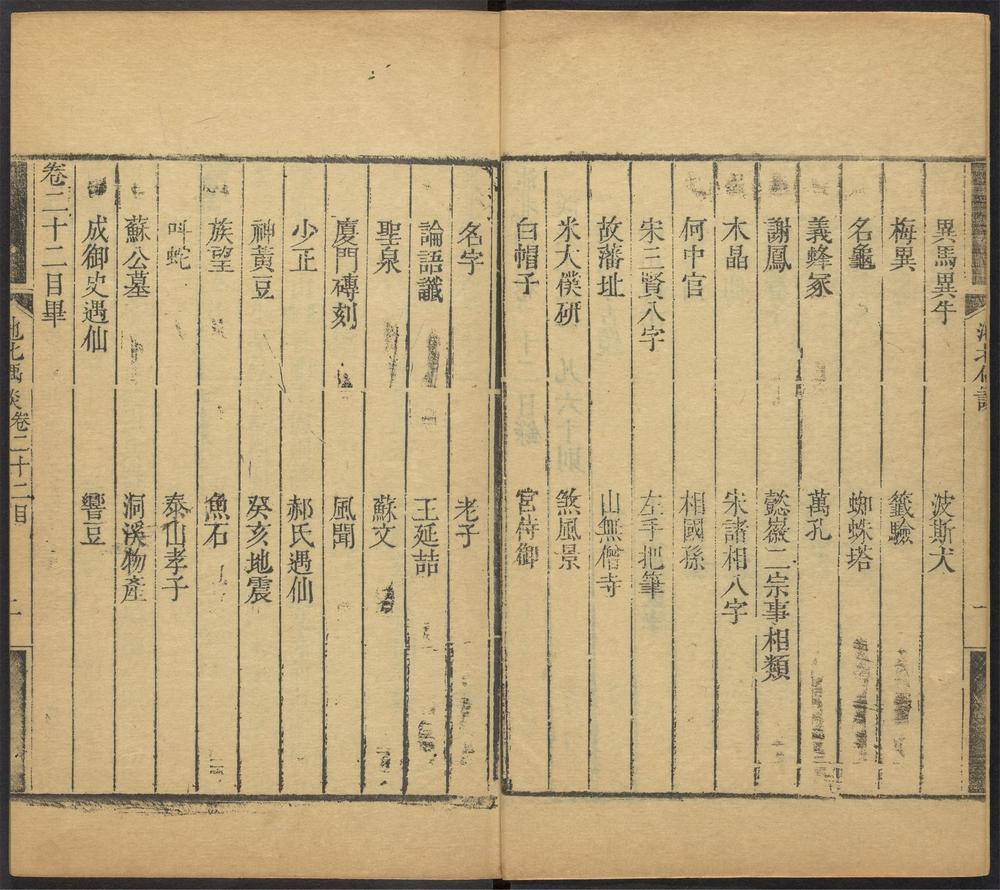 異馬異牛 波斯犬
梅異 籤驗
名龜 蜘蛛塔
義蜂冢 萬孔
謝鳳 懿嶽二宗事相類
木晶 宋諸相八字
何中官 相國孫
宋三賢八字 左手把筆
故藩址 山無僧寺
米太僕研 煞風景
白帽子 宮侍御
名字 老子
論語讖 王延喆
聖泉 蘇文
廈門磚刻 風聞
少正 郝氏遇仙
神黃豆 癸亥地震
族望 魚石
叫蛇 泰山孝子
蘇公墓 洞溪物產
成御史遇仙 響豆
卷二十二目畢
池北偶談卷二十二目 二